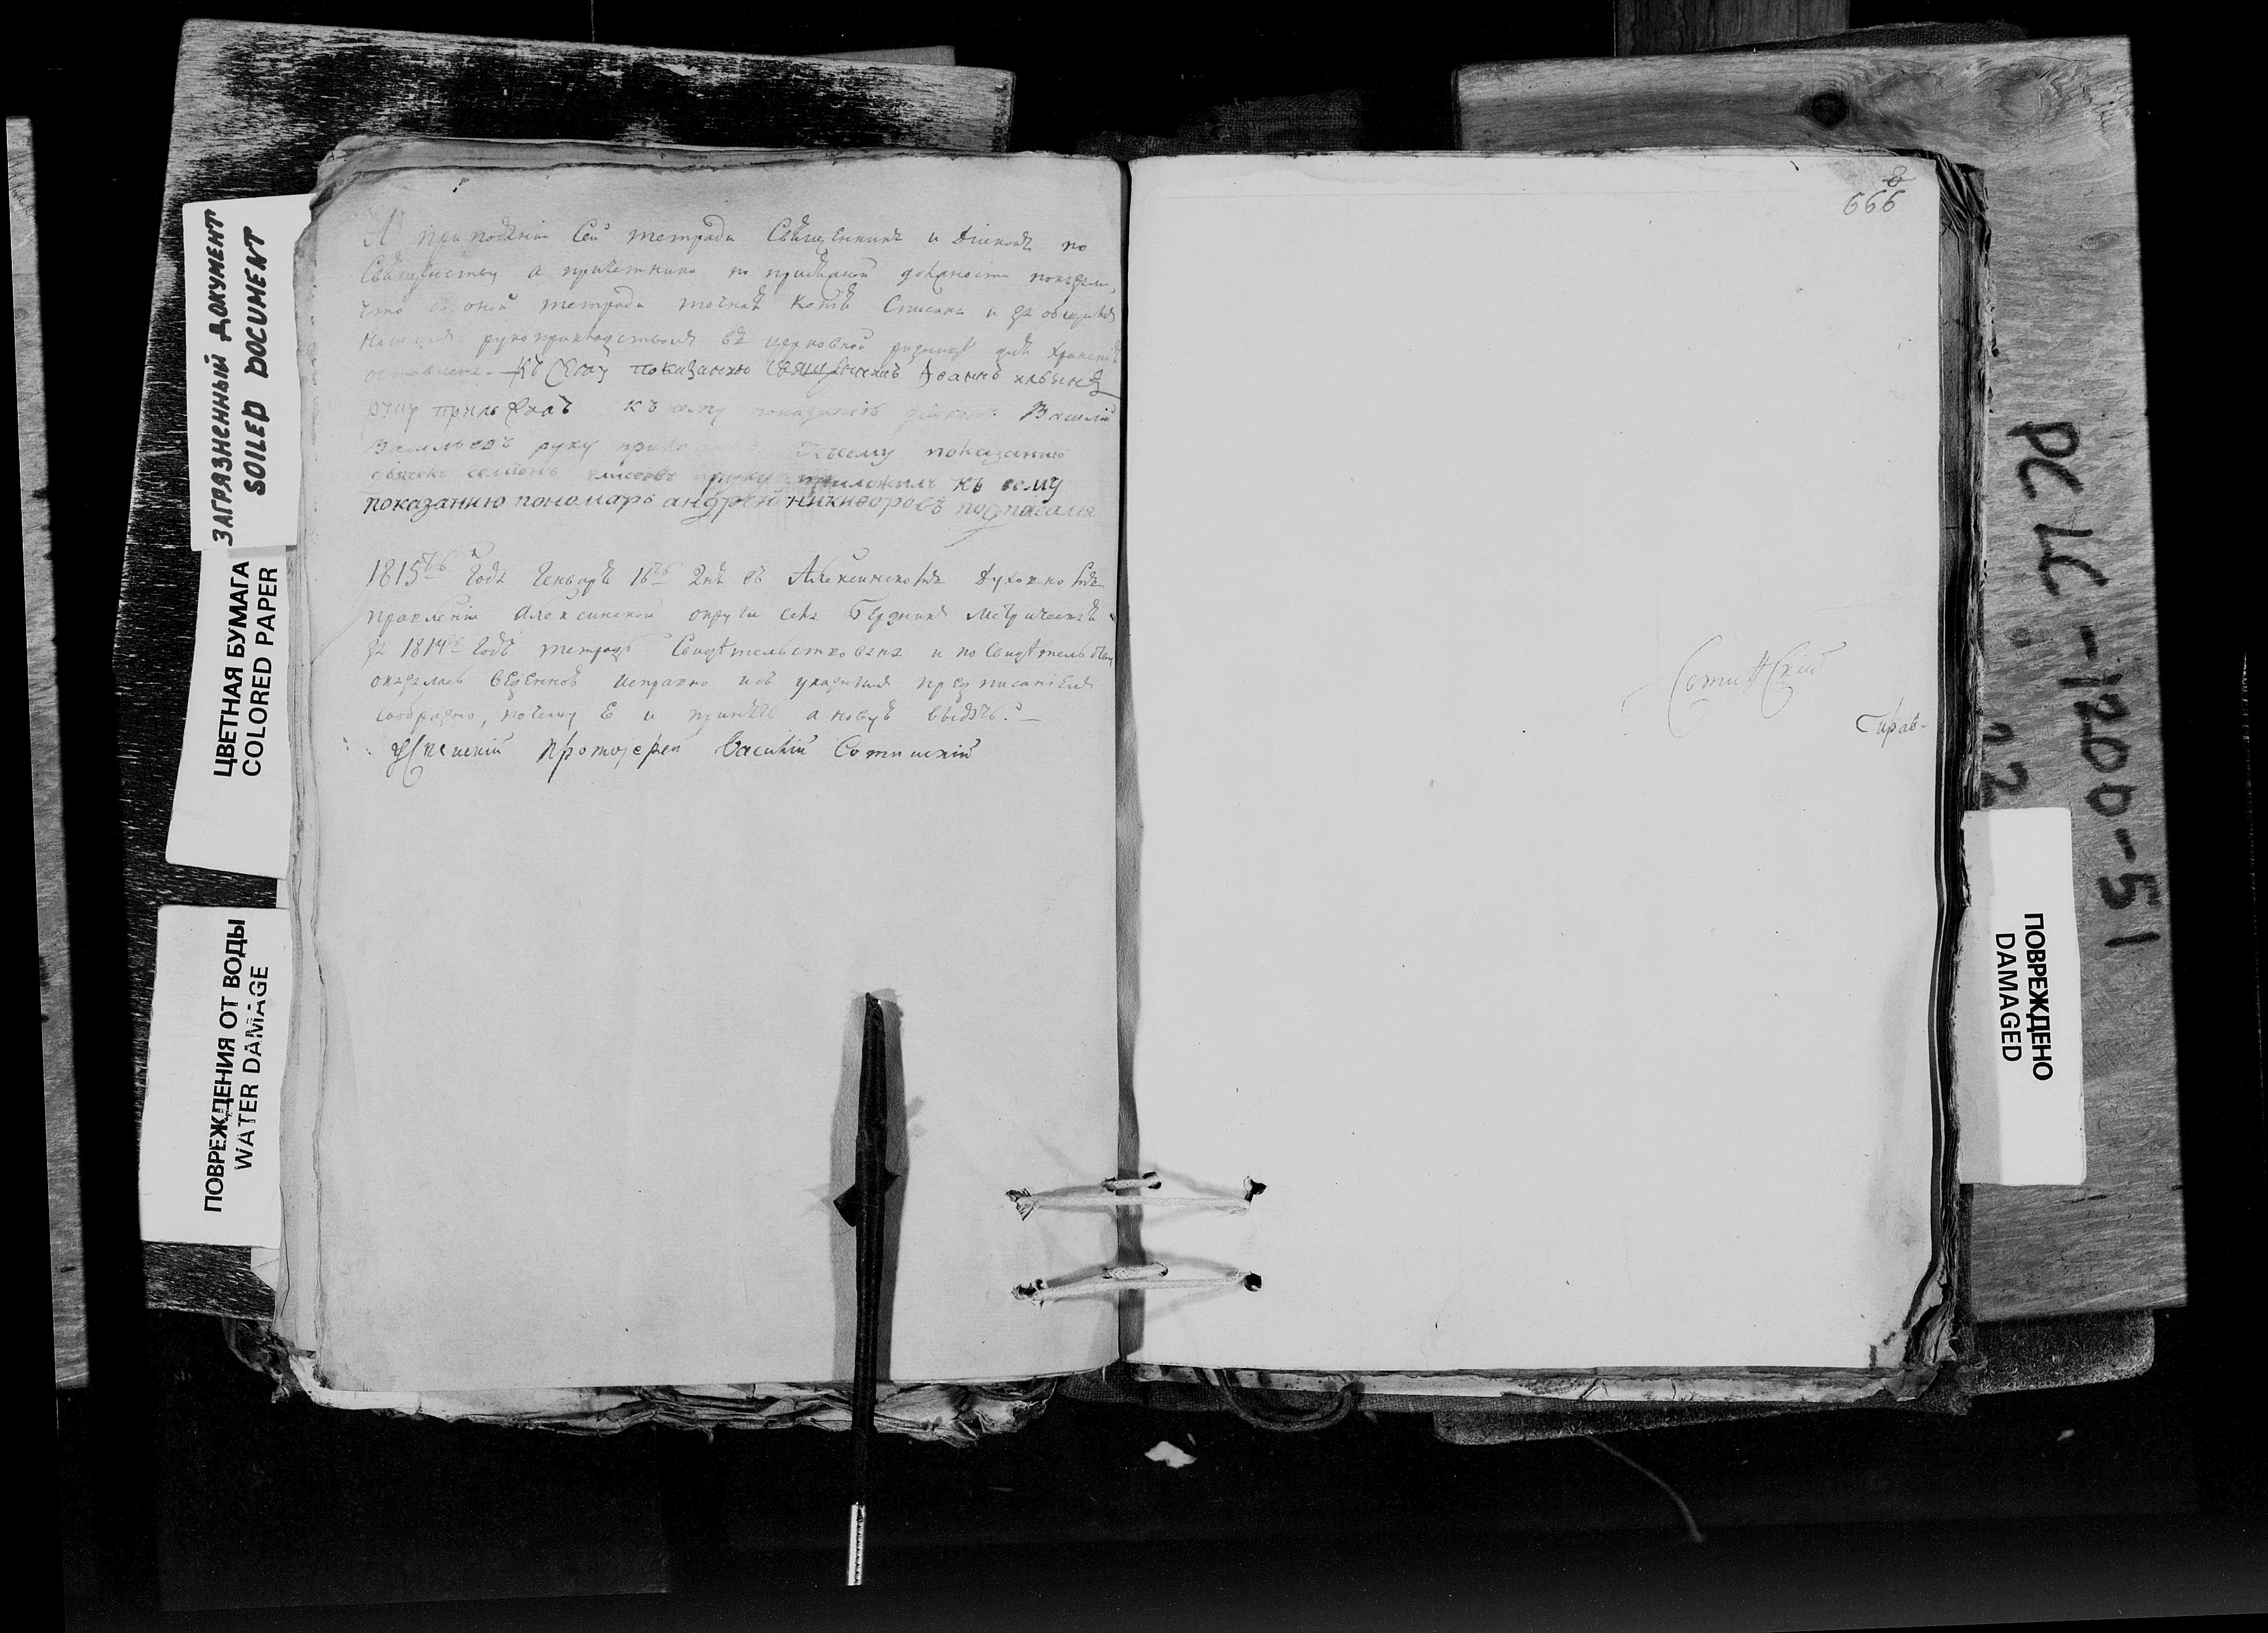 А при подачи сей тетради священникъ и диаконъ по
священству а причетники по присяжной должности показали,
что со оной тетради точная копія списана и за общимъ
нашимъ рукоприкладствомъ въ церковной ризнице для храненія
оставлена. Къ сему показанию священникъ Иоаннъ
руку приложилъ къ сему показанію діаконъ Василій
Васильевъ руку приложилъ Къ сему показанию
дьячекъ семионъ руку приложилъ къ сему
показанию пономарь андрей никифоровъ подписался
1815го года Генваря 16го дня въ Алексинскомъ духовномъ
правленіи Алексинской округи села метрическая
за 1814й годъ тетрадь свидѣтельствована и по свидѣтельству
оказалась веденною исправно и съ указными предписаніями
сообразно, почему е и принять а новую выдать.
Протоіерей Василій Сотинскій
666
Сотинскій
Справ-
ЗАГРЯЗНЕННЫЙ ДОКУМЕНТ
SOILED DOCUMENT
ЦВЕТНАЯ БУМАГА
COLORED PAPER
ПОВРЕЖДЕНИЯ ОТ ВОДЫ
WATER DAMAGE
ПОВРЕЖДЕНО
DAMAGED
22